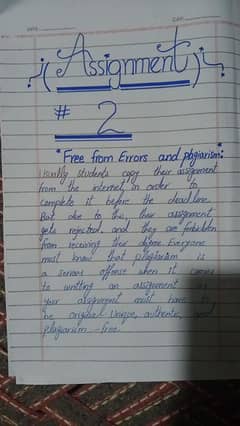 Assignment
# 2
"Free from Errors and plagiarism:
Usually students copy their assignment
from the internet in order to
complete it before the deadline.
But due to this, their assignment
gets rejected, and they are forbidden
from receiving their degree. Everyone
must know that plagiarism is
a serious offense when it comes
to writting an assignment
your assignment must have to
be original Unique, authentic, and
plagiarism - free.